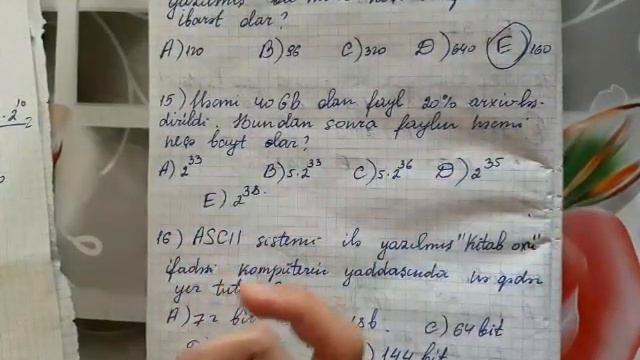 yazılmış
ibarət olar?
A) 120 B) 96 C) 320 D) 640 E) 160
15) Həcmi 40 GB olan fayl 20% arxivləş-
dirildi. Bundan sonra faylın həcmi
neçə bayt olar?
A) 2^33 B) 5·2^33 C) 5·2^36 D) 2^35
E) 2^38.
16) ASCII sistemi ilə yazılmış "Kitab oxu"
ifadəsi kompüterin yaddaşında nə qədər
yer tut
A) 72 bi C) 64 bit
144 bit
· 2^10